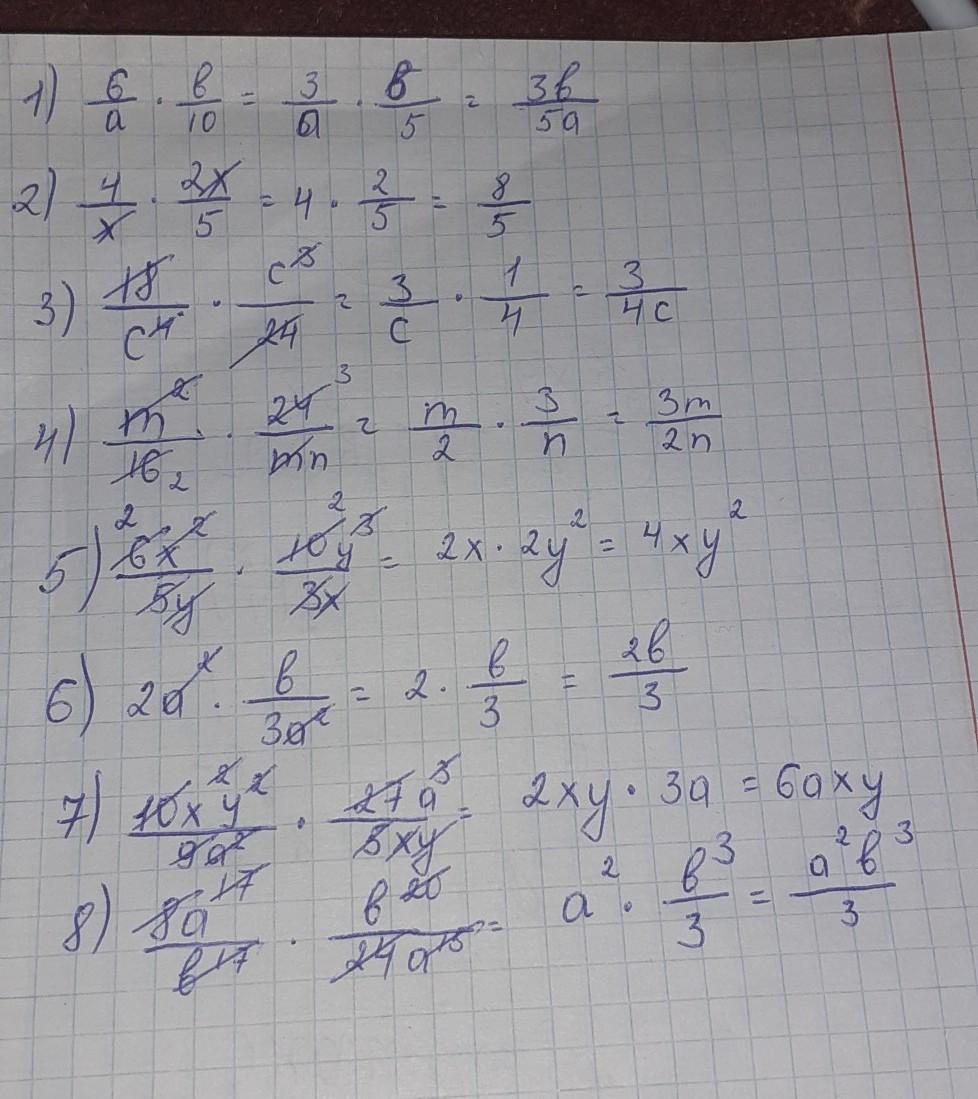 1) 6/a · b/10 = 3/a · b/5 = 3b/5a
2) 4/x · 2x/5 = 4 · 2/5 = 8/5
3) 18/c⁴ · c³/24 = 3/c · 1/4 = 3/4c
4) m²/16 2 · 24 3/mn = m/2 · 3/n = 3m/2n
5) 2 6x²/5y · 10 2 y³/3x = 2x · 2y² = 4xy²
6) 2a² · b/3a² = 2 · b/3 = 2b/3
7) 10x²y²/9a² · 27a³/5xy = 2xy · 3a = 6axy
8) 8a¹⁷/b¹⁷ · b²⁰/24a¹⁵ = a² · b³/3 = a²b³/3